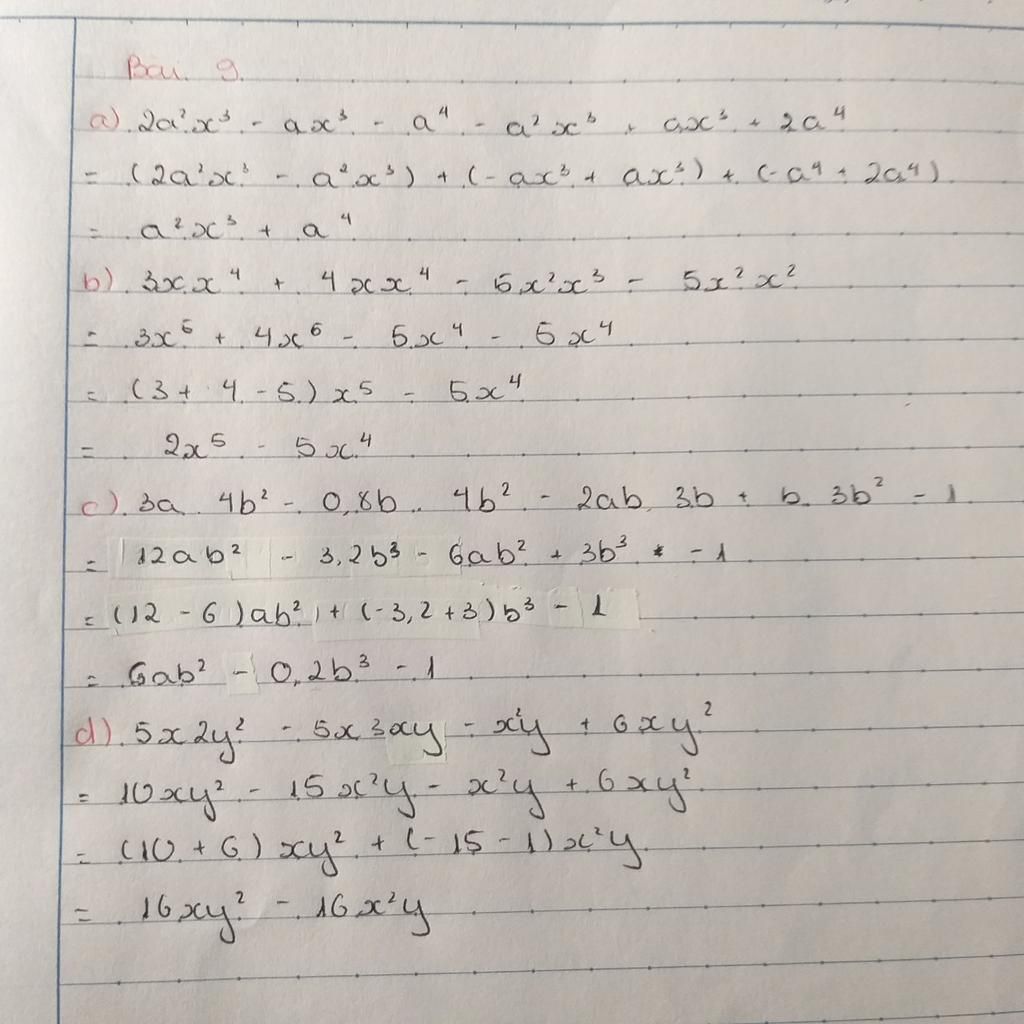 Bài 9.
a) 2a²x³ - ax³ - a⁴ - a²x³ + ax³ + 2a⁴
= (2a²x³ - a²x³) + (-ax³ + ax³) + (-a⁴ + 2a⁴)
= a²x³ + a⁴
b) 3x.x⁴ + 4xx⁴ - 5x²x³ - 5x²x²
= 3x⁵ + 4x⁵ - 5x⁴ - 5x⁴
= (3 + 4 - 5) x⁵ - 5x⁴
= 2x⁵ - 5x⁴
c) 3a. 4b² - 0,8b. 4b² - 2ab. 3b + b. 3b² - 1
= 12ab² - 3,2b³ - 6ab² + 3b³ - 1
= (12 - 6)ab² + (-3,2 + 3)b³ - 1
= 6ab² - 0,2b³ - 1
d) 5x2y² - 5x3xy - x²y + 6xy²
= 10xy² - 15x²y - x²y + 6xy²
= (10 + 6) xy² + (-15 - 1)x²y
= 16xy² - 16x²y